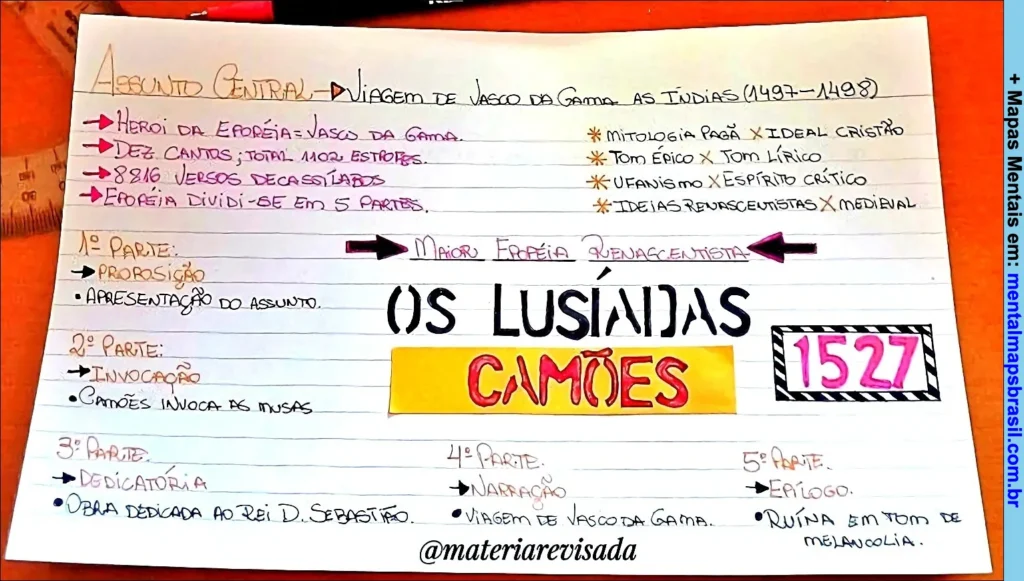 ASSUNTO CENTRAL → VIAGEM DE VASCO DA GAMA AS ÍNDIAS (1497-1498)
→ HEROI DA EPOPÉIA = VASCO DA GAMA.
→ DEZ CANTOS; TOTAL 1102 ESTROFES.
→ 8816 VERSOS DECASSÍLABOS
→ EPOPÉIA DIVIDI-SE EM 5 PARTES.
* MITOLOGIA PAGÃ X IDEAL CRISTÃO
* TOM ÉPICO X TOM LÍRICO
* UFANISMO X ESPÍRITO CRÍTICO
* IDEIAS RENASCENTISTAS X MEDIEVAL
→ MAIOR EPOPÉIA RENASCENTISTA ←
OS LUSÍADAS
CAMÕES
1527
1º PARTE:
→ PROPOSIÇÃO
• APRESENTAÇÃO DO ASSUNTO.
2º PARTE:
→ INVOCAÇÃO
• CAMÕES INVOCA AS MUSAS
3º PARTE.
→ DEDICATÓRIA
• OBRA DEDICADA AO REI D. SEBASTIÃO.
4º PARTE.
→ NARRAÇÃO
• VIAGEM DE VASCO DA GAMA.
5º PARTE.
→ EPÍLOGO.
• RUÍNA EM TOM DE
MELANCOLIA.
@materiarevisada
+ Mapas Mentais em: mentalmapsbrasil.com.br